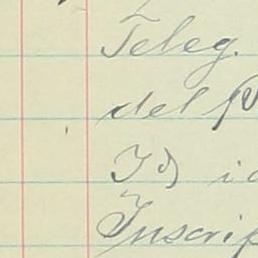 Teleg.
del P
Id id
Inscrip